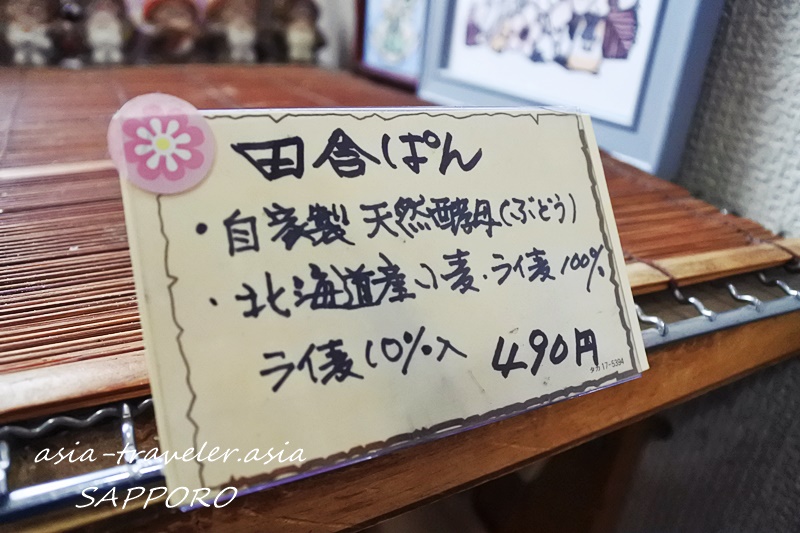 田舎ぱん
・自家製 天然酵母(ぶどう)
・北海道産小麦・ライ麦100%
ライ麦10%入 490円
タカ17-5394
asia-traveler.asia
SAPPORO